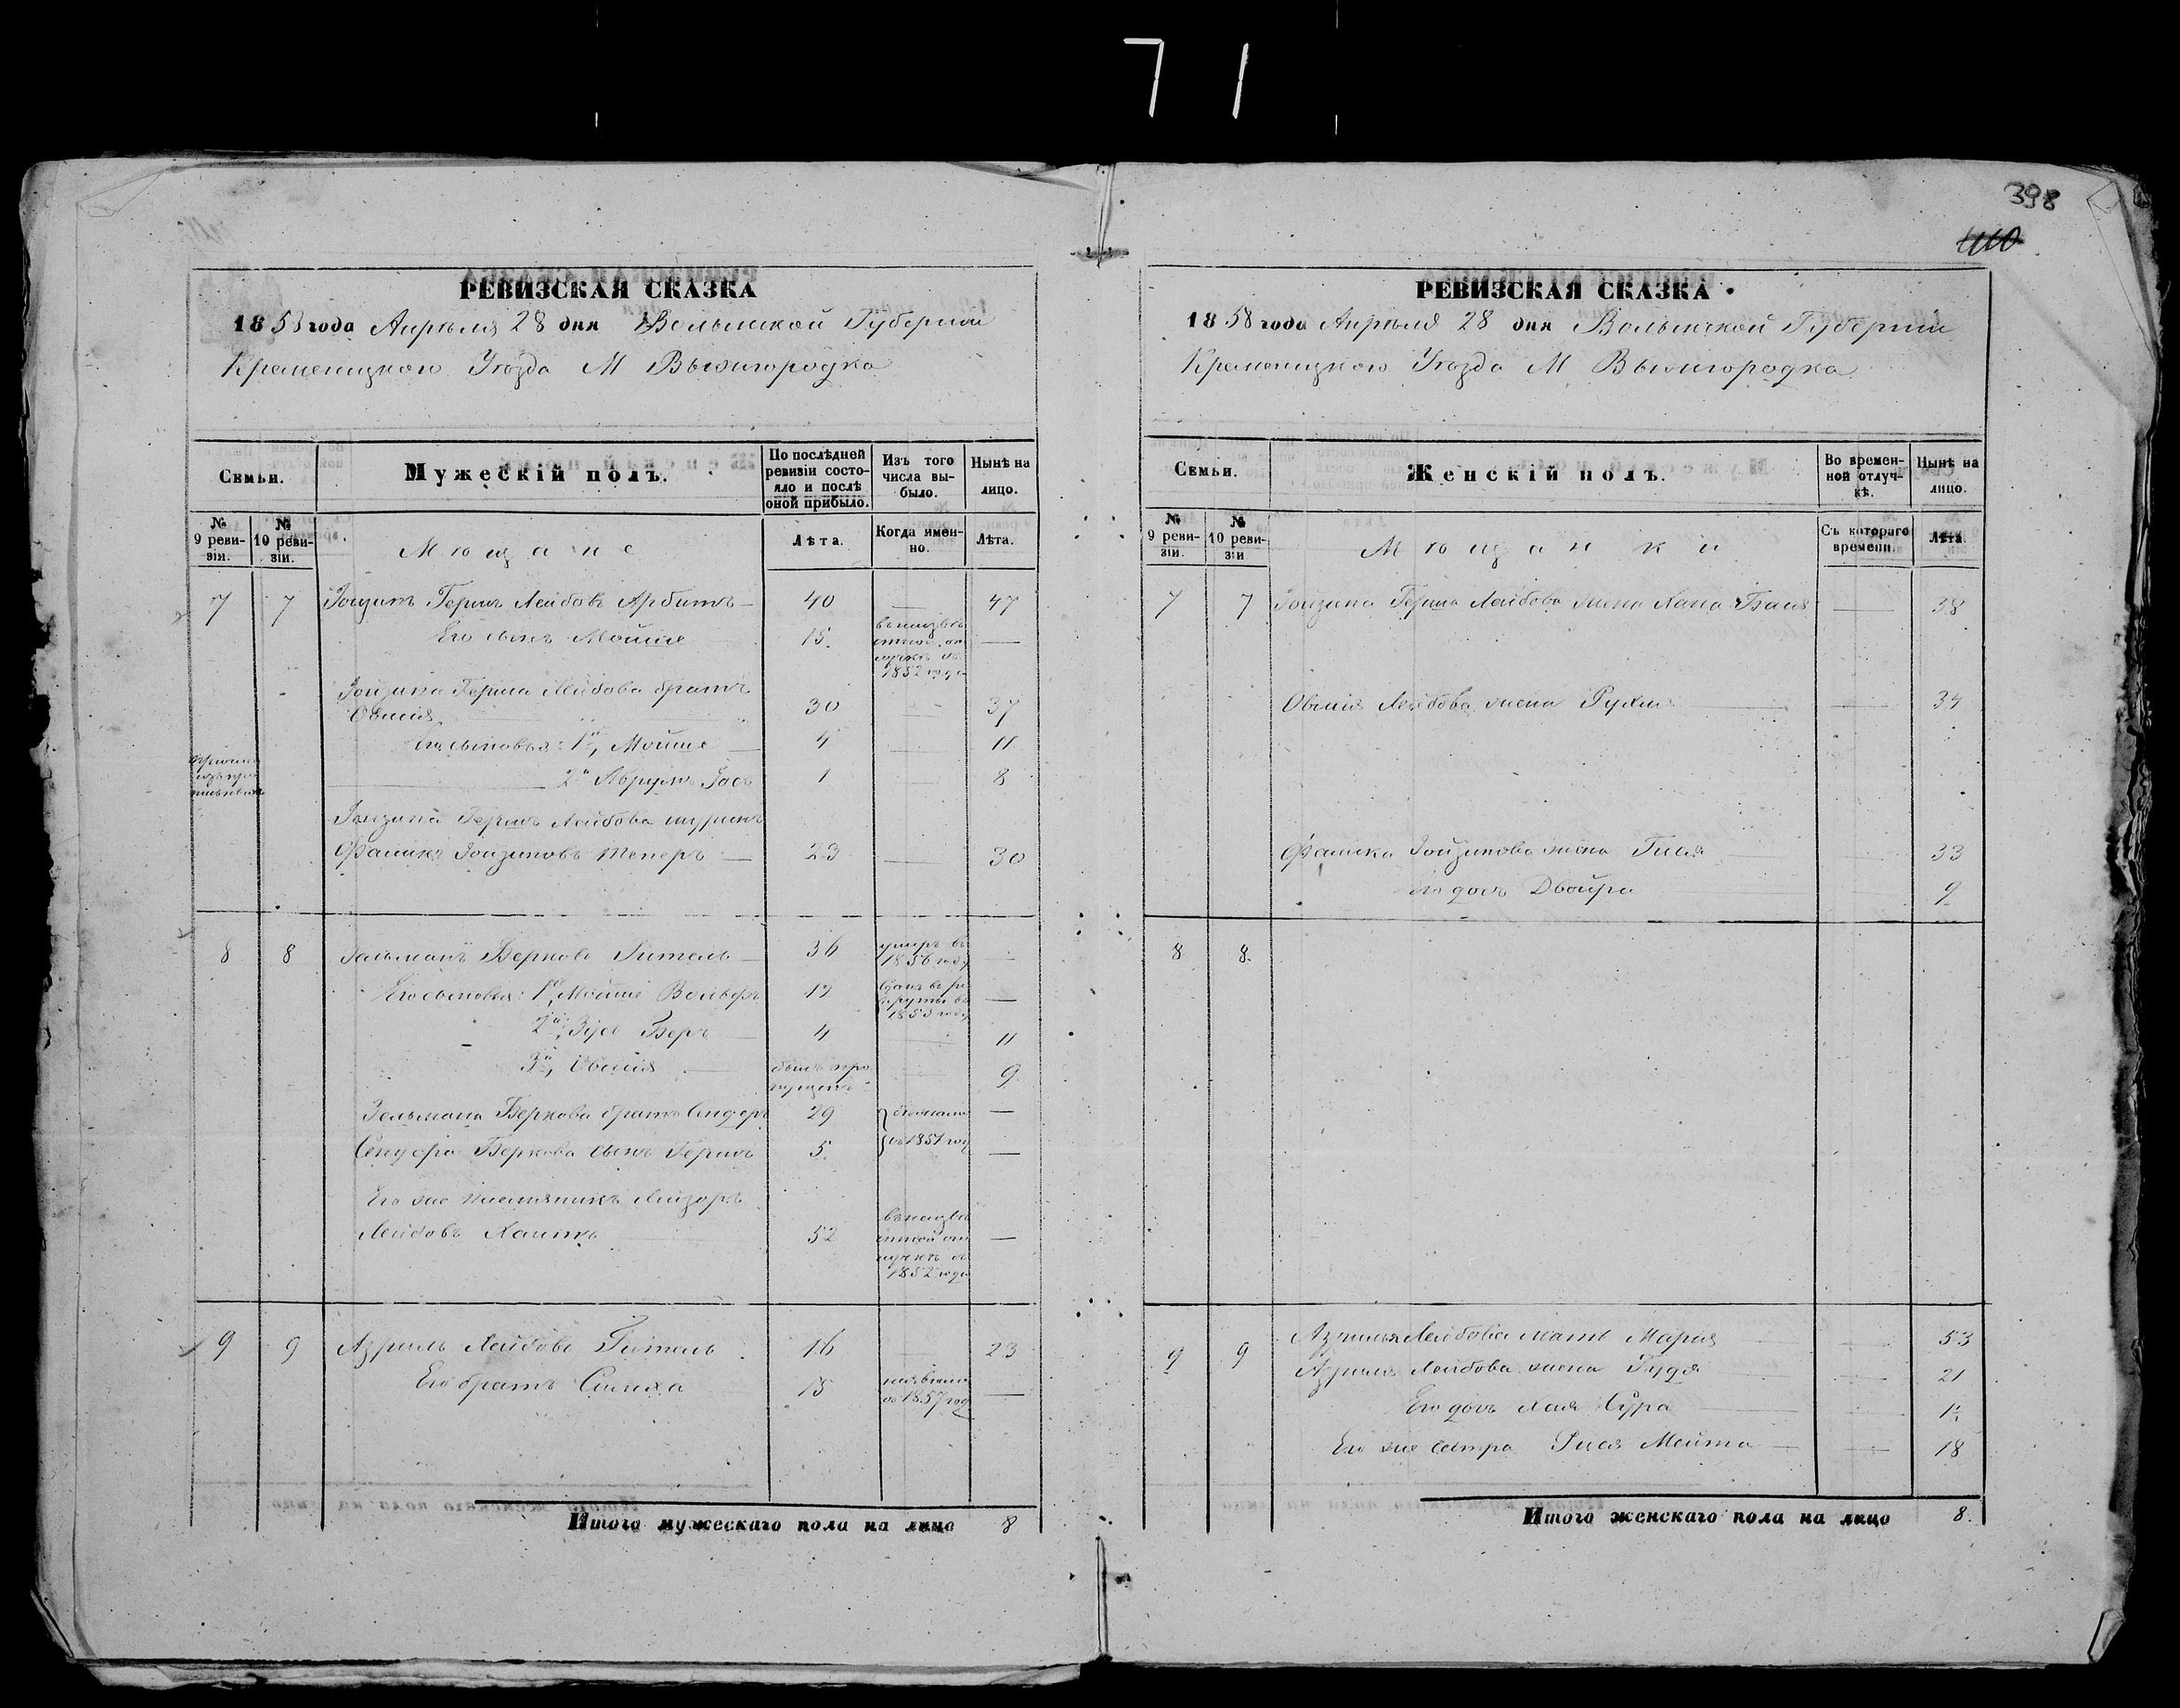 71
398
РЕВИЗСКАЯ СКАЗКА
1858 года Апреля 28 дня Волынской Губернии
Кременецкого Уезда М Вышгородка
Семьи.
Мужескій полъ.
По послѣдней ревизіи состояло и послѣ оной прибыло.
Изъ того числа выбыло.
Нынѣ на лицо.
№ 9 ревизіи.
№ 10 ревизіи.
Мещане
Лѣта.
Когда именно.
Лѣта.
7 7 Герш Лейбовъ Арбитъ 40 — 47
Его сынъ Мойше 15 въ неизвестной отлучке съ 1852 года —
Герша Лейбова братъ
Овшія 30 — 37
Его сыновья: 1й, Мойше 4 — 11
2й Аврумъ 1 8
Герша Лейбова шуринъ
23 — 30
8 8 Зельманъ Берковъ Гительъ 36 умеръ въ 1856 году —
Его сыновья: 1й, Мойше Вольфъ 12 въ рекруты въ 1853 году —
2й, Зусь Беръ 4 — 11
3й, Овшія былъ пропущенъ — 9
Зельмана Беркова братъ Сендеръ 29 —
Сендера Беркова сынъ Гершъ 5. —
Его же племянникъ Лейзоръ
Лейбовъ 52 въ неизвестной отлучке съ 1852 года —
9 9 Азриль Лейбовъ Гитель 16 — 23
Его братъ Симха 15 съ 1857 года —
Итого мужескаго пола на лицо 8
РЕВИЗСКАЯ СКАЗКА
1858 года Апреля 28 дня Волынской Губернии
Кременецкого Уезда М Вышгородка
Семьи.
Женскій полъ.
Во временной отлучкѣ.
Нынѣ на лицо.
№ 9 ревизіи.
№ 10 ревизіи
Мещанки
Съ котораго времени.
Лѣта.
7 7 Герша Лейбова жена Хана Бася — 38
Овшія Лейбова жена Рухля — 34
жена Гися 33
Его дочь Двойра 9
8 8.
9 9 Азриля Лейбова мать Мария 53
Азриля Лейбова жена 21
Его дочь Хая Сура 1½
Его же сестра 18
Итого женскаго пола на лицо 8.